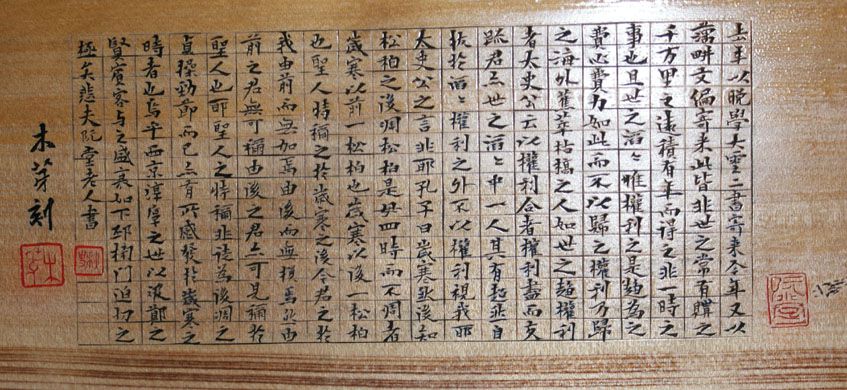 去年以晚學大雲二書寄來今年又以
藕畊文偏寄來此皆非世之常有購之
千万里之遠積有年而得之非一時之
事也且世之滔々惟權利之是趍為之
費心費力如此而不以歸之權利乃歸
之海外蕉萃枯槁之人如世之趍權利
者太史公云以權利合者權利盡而交
踈君亦世之滔々中一人其有超然自
拔於滔々權利之外不以權利視我耶
太史公之言非耶孔子曰歲寒然後知
松栢之後凋松栢是毋四時而不凋者
歲寒以前一松栢也歲寒以後一松栢
也聖人特稱之於歲寒之後今君之於
我由前而無加焉由後而無損焉然由
前之君無可稱由後之君亦可見稱於
聖人也耶聖人之特稱非徒為後凋之
貞操勁節而已亦有所感發於歲寒之
時者也烏乎西京淳厚之世以汲鄭之
賢賓客與之盛衰如下邳榜門迫切之
極矣悲夫阮堂老人書
木芽刻